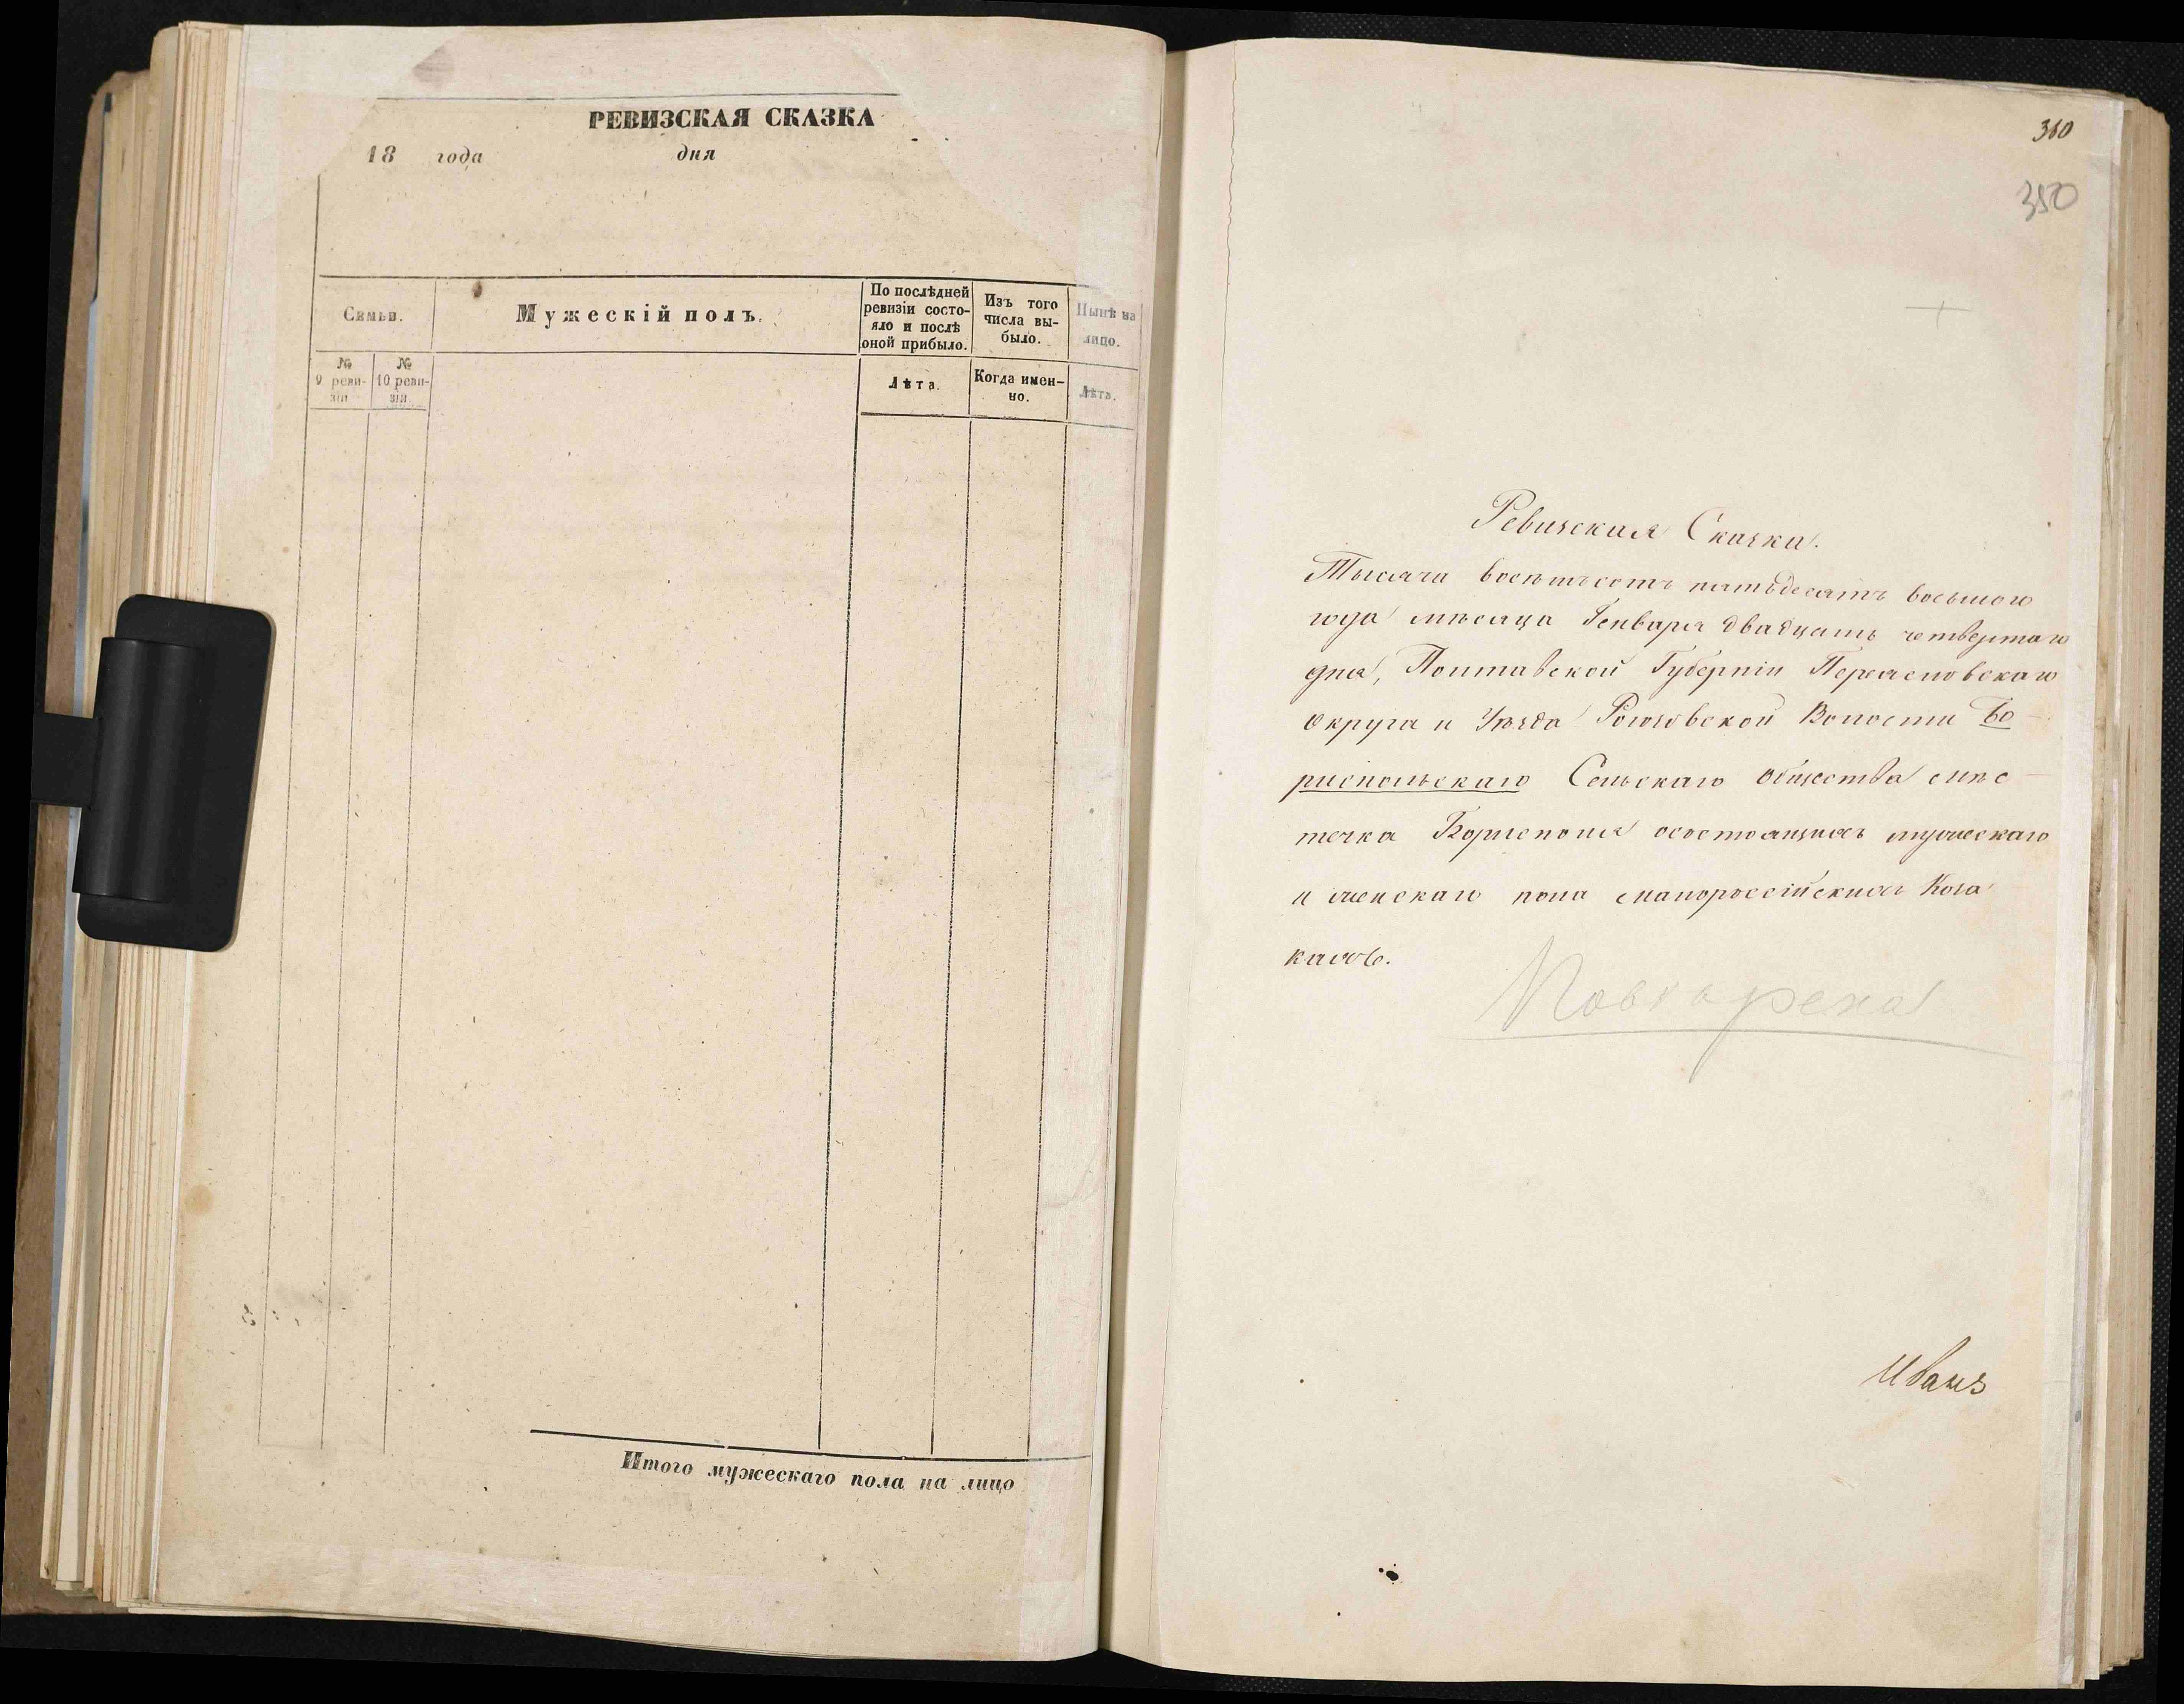 РЕВИЗСКАЯ СКАЗКА
18 года дня
Семьи.
Мужескій полъ.
По послѣдней ревизіи состо-яло и послѣ оной прибыло.
Изъ того числа вы-было.
Нынѣ на лицо.
№ 9 реви-зіи
№ 10 реви-зіи
Лѣта.
Когда имен-но.
Лѣта.
Итого мужескаго пола на лицо
350
Ревизская Сказка.
Тысяча восемьсотъ пятьдесятъ восьмого
года мѣсяца Генваря двадцать четвертаго
дня, Полтавской Губерніи Переяславскаго
Округа и Уѣзда Рогозовской Волости Бо
риспольскаго Сельскаго общества мѣс
течка Борисполя о состоящихъ мужескаго
и женскаго пола малороссійскихъ Коза
кахъ.
Иванъ